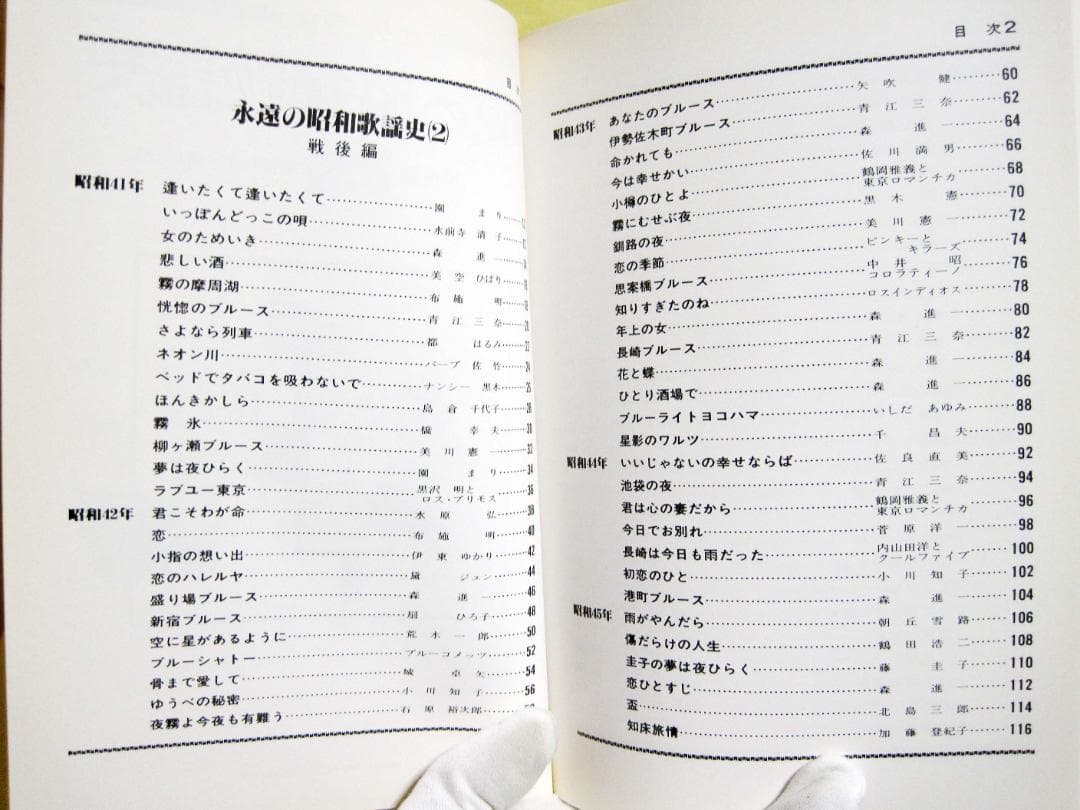 目
永遠の昭和歌謡史(2)
戦後編
昭和41年 逢いたくて逢いたくて……園 まり……
いっぽんどっこの唄……水前寺 清子……
女のためいき……森 進一……
悲しい酒……美空 ひばり……
霧の摩周湖……布施 明……
恍惚のブルース……青江 三奈……20
さよなら列車……都 はるみ……22
ネオン川……バーブ 佐竹……24
ベッドでタバコを吸わないで……ナンシー 黒木……25
ほんきかしら……島倉 千代子……28
霧 氷……橋 幸夫……31
柳ヶ瀬ブルース……美川 憲一……33
夢は夜ひらく……園 まり……34
ラブユー東京……黒沢 明とロス・プリモス……36
昭和42年 君こそわが命……水原 弘……38
恋……布施 明……40
小指の想い出……伊東 ゆかり……42
恋のハレルヤ……黛 ジュン……44
盛り場ブルース……森 進一……46
新宿ブルース……扇 ひろ子……48
空に星があるように……荒木 一郎……50
ブルーシャトー……ブルーコメッツ……52
骨まで愛して……城 卓矢……54
ゆうべの秘密……小川 知子……56
夜霧よ今夜も有難う……石原 裕次郎……
目 次2
昭和43年 あなたのブルース……矢吹 健……60
伊勢佐木町ブルース……青江三奈……62
命かれても……森 進一……64
今は幸せかい……佐川満男……66
小樽のひとよ……鶴岡雅義と東京ロマンチカ……68
霧にむせぶ夜……黒木 憲……70
釧路の夜……美川憲一……72
恋の季節……ピンキーとキラーズ……74
思案橋ブルース……中井 昭 コロラティーノ……76
知りすぎたのね……ロスインディオス……78
年上の女……森 進一……80
長崎ブルース……青江三奈……82
花と蝶……森 進一……84
ひとり酒場で……森 進一……86
ブルーライトヨコハマ……いしだ あゆみ……88
星影のワルツ……千 昌夫……90
昭和44年 いいじゃないの幸せならば……佐良直美……92
池袋の夜……青江三奈……94
君は心の妻だから……鶴岡雅義と東京ロマンチカ……96
今日でお別れ……菅原洋一……98
長崎は今日も雨だった……内山田洋とクールファイブ……100
初恋のひと……小川知子……102
港町ブルース……森 進一……104
昭和45年 雨がやんだら……朝丘雪路……106
傷だらけの人生……鶴田浩二……108
圭子の夢は夜ひらく……藤 圭子……110
恋ひとすじ……森 進一……112
盃……北島三郎……114
知床旅情……加藤 登紀子……116